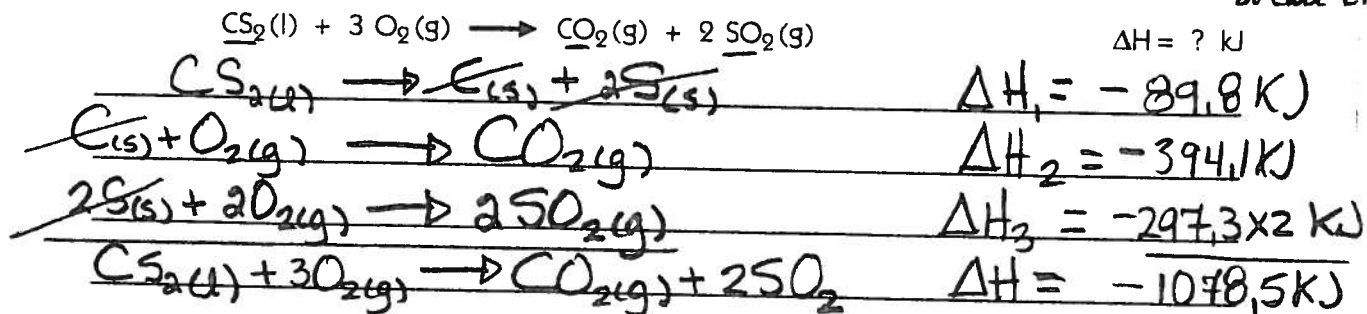 CS₂(l) + 3 O₂(g) ⟶ CO₂(g) + 2 SO₂(g) ΔH = ? kJ
CS₂(l) → C(s) + 2S(s) ΔH₁ = -89,8 KJ
C(s) + O₂(g) → CO₂(g) ΔH₂ = -394,1KJ
2S(s) + 2O₂(g) → 2SO₂(g) ΔH₃ = -297,3x2 KJ
CS₂(l) + 3O₂(g) → CO₂(g) + 2SO₂ ΔH = -1078,5KJ